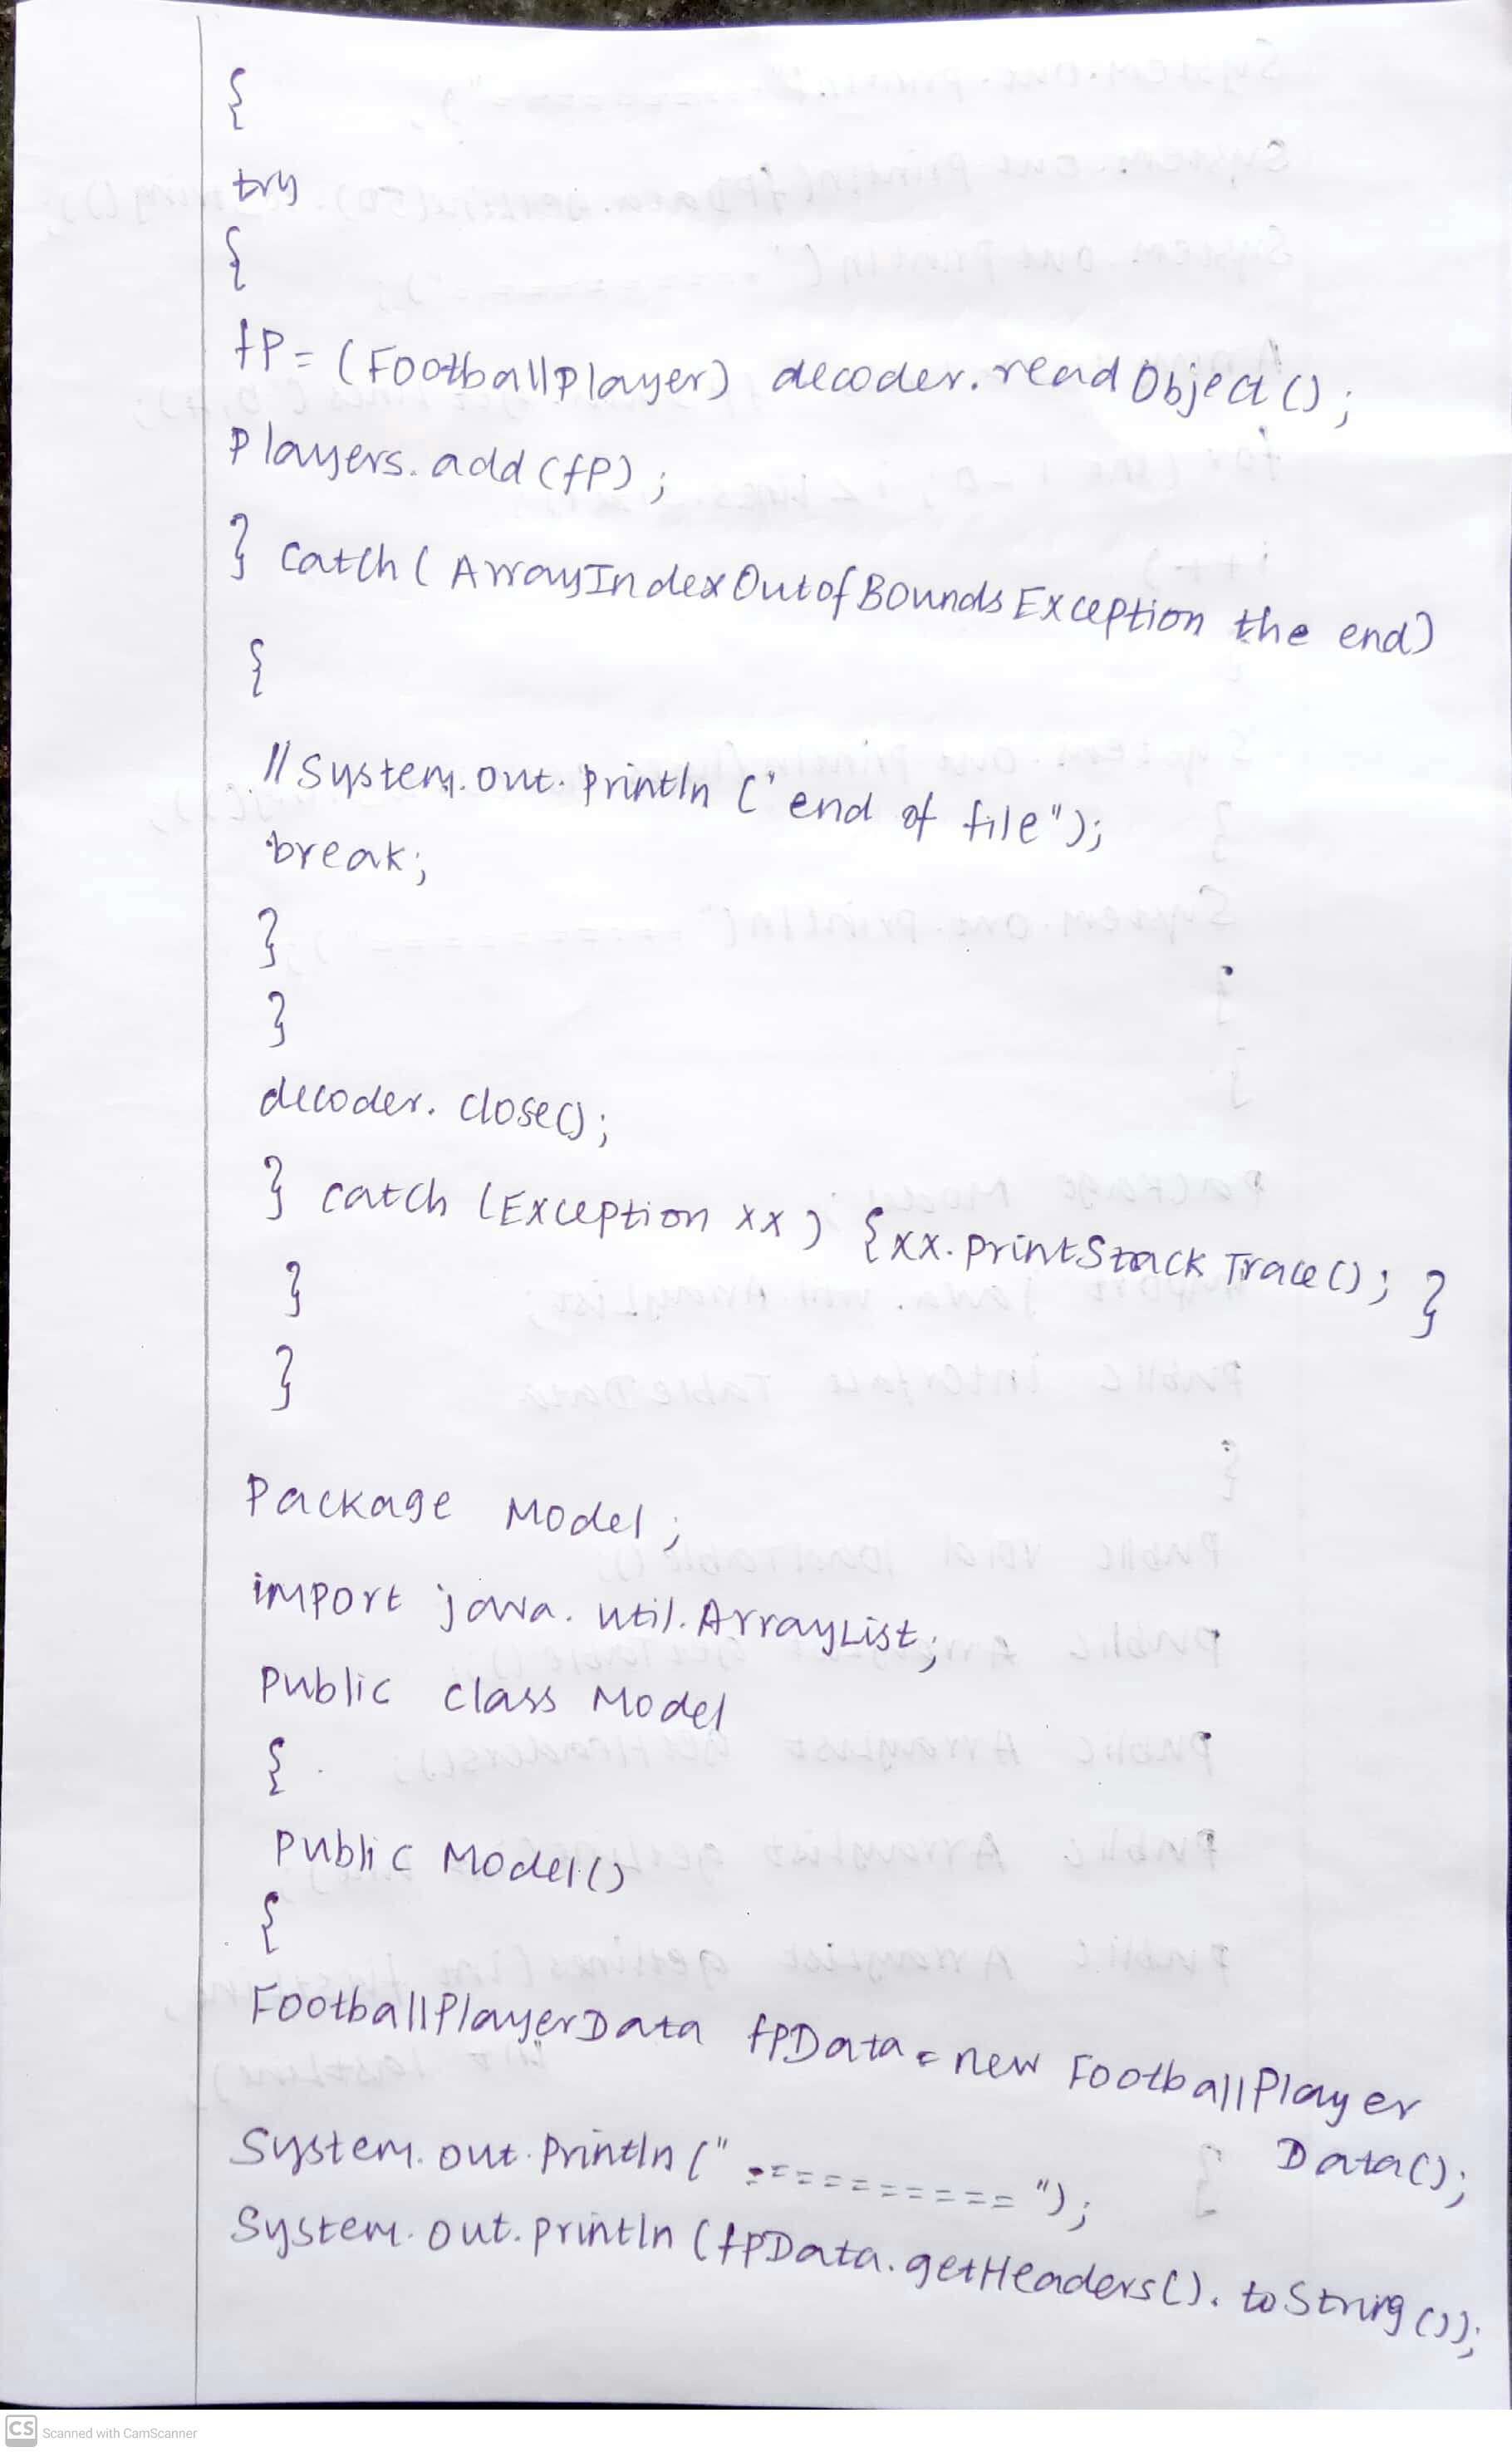 {
try
{
fP = (FootballPlayer) decoder.readObject();
Players.add(fP);
} catch (ArrayIndexOutofBoundsException the end)
{
// System.out.println ("end of file");
break;
}
}
decoder.close();
} catch (Exception xx) {xx.printStackTrace(); }
}
}
Package Model;
import java.util.ArrayList;
Public class Model
{
Public Model()
{
FootballPlayerData fpData = new FootballPlayer
Data();
System.out.println (" ========== ");
System.out.println (fpData.getHeaders().toString());
CS Scanned with CamScanner